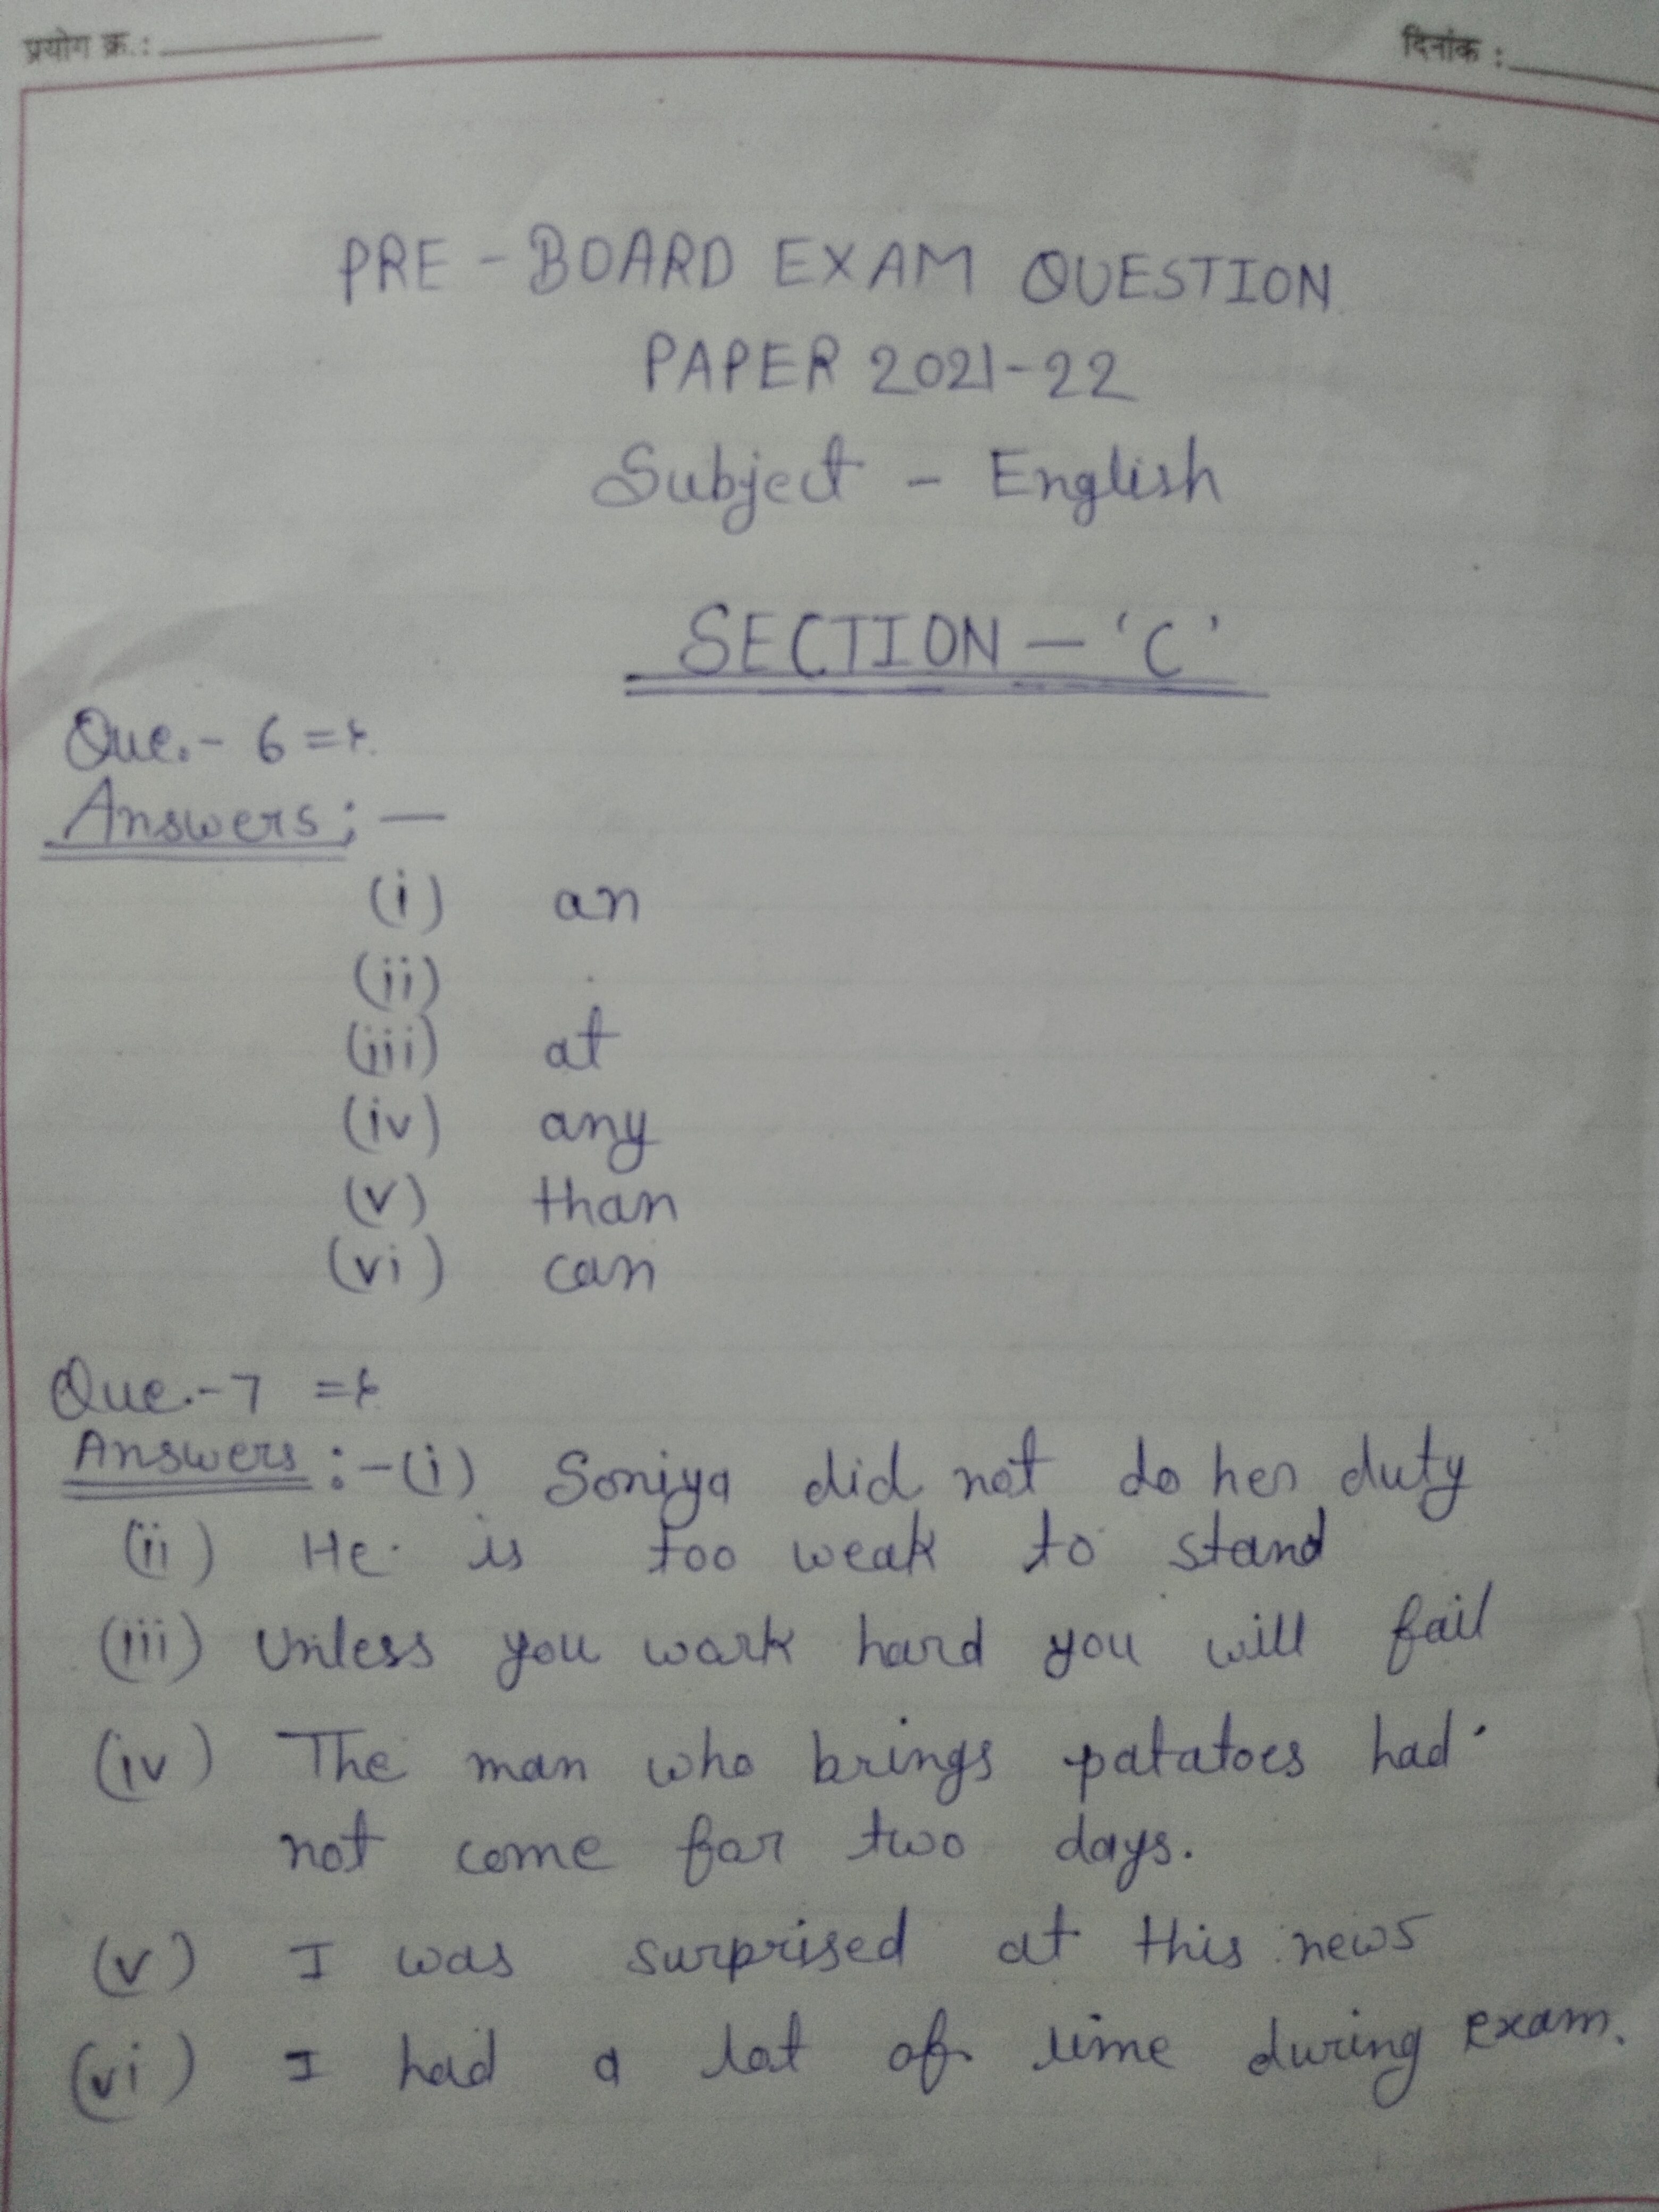 प्रयोग क्र.: दिनांक :
PRE - BOARD EXAM QUESTION
PAPER 2021-22
Subject - English
SECTION - 'C'
Que.- 6 =
Answers : —
(i) an
(ii)
(iii) at
(iv) any
(v) than
(vi) can
Que.-7 =
Answers :-(i) Soniya did not do her duty
(ii) He is too weak to stand
(iii) Unless you work hard you will fail
(iv) The man who brings patatoes had
not come for two days.
(v) I was surprised at this news
(vi) I had a lot of time during exam.